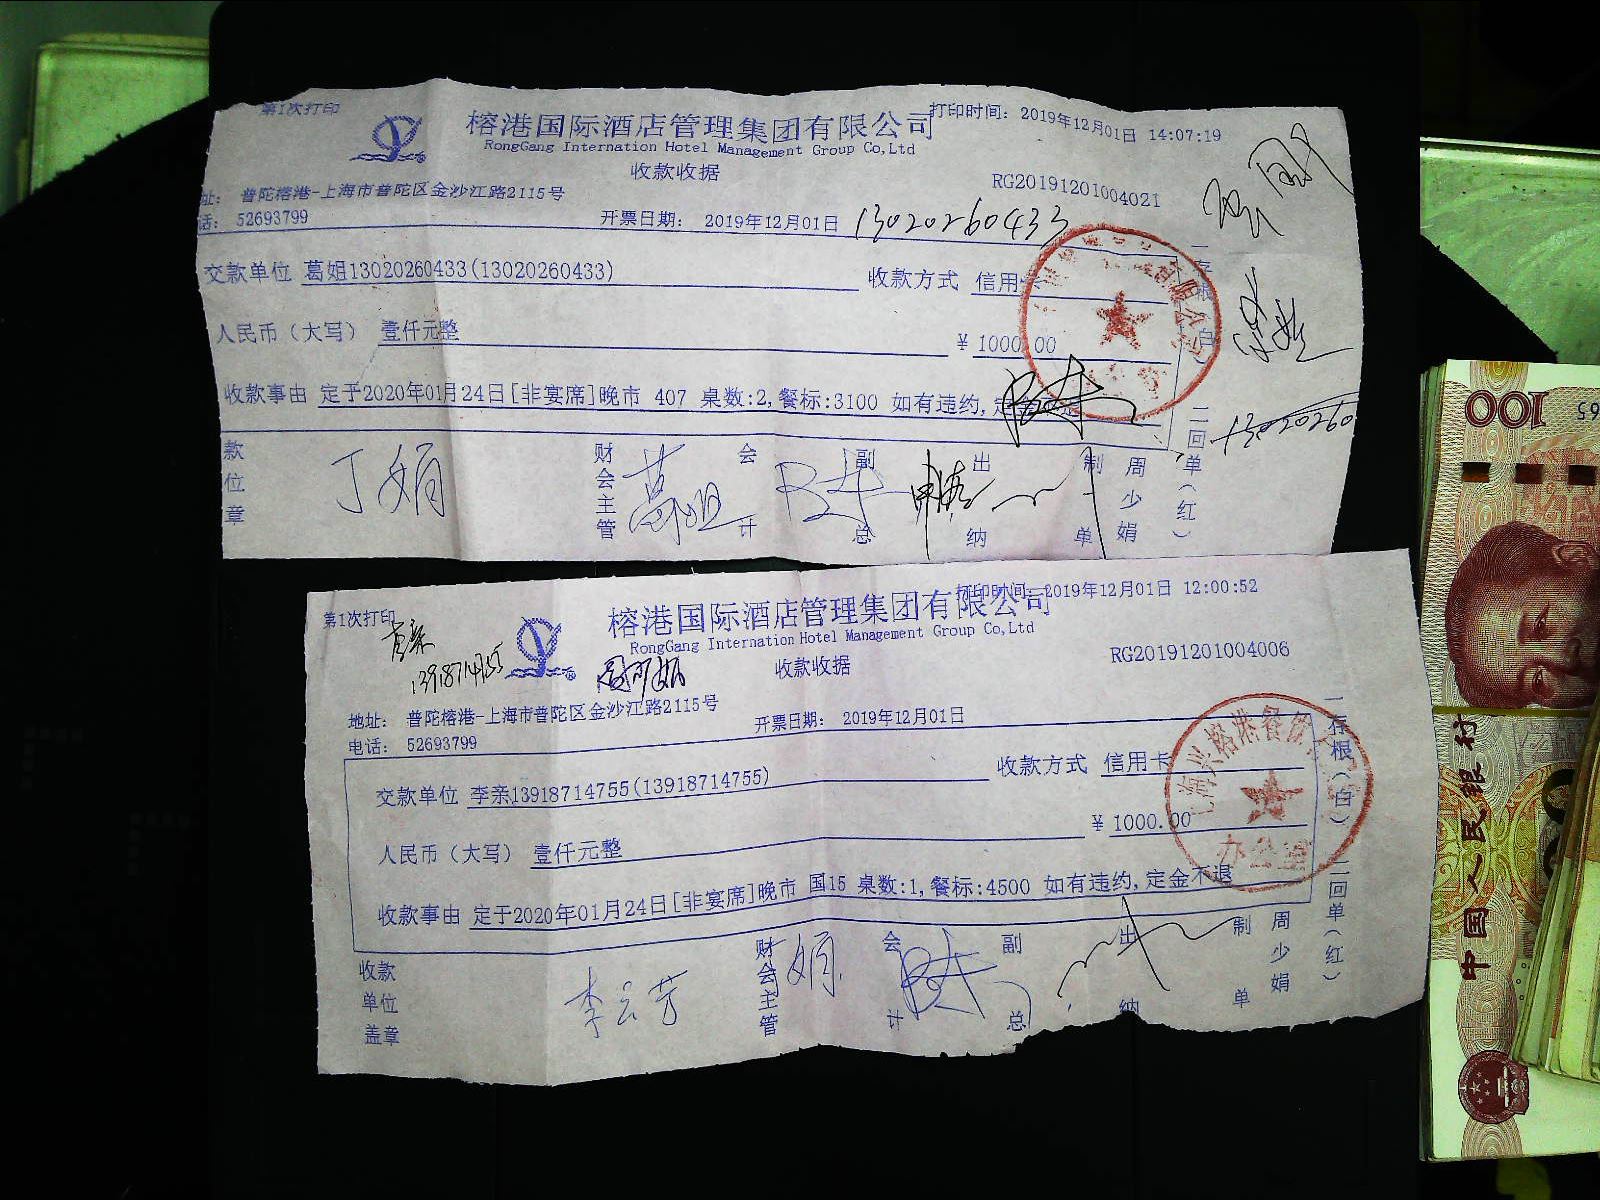 第1次打印
榕港国际酒店管理集团有限公司
打印时间: 2019年12月01日 14:07:19
RongGang Internation Hotel Management Group Co,Ltd
收款收据
RG20191201004021
址: 普陀榕港-上海市普陀区金沙江路2115号
话: 52693799
开票日期: 2019年12月01日 13020260433
交款单位 葛姐13020260433(13020260433)
收款方式 信用
人民币（大写） 壹仟元整
¥ 1000.00
收款事由 定于2020年01月24日[非宴席]晚市 407 桌数:2,餐标:3100 如有违约,
13020260
款位章
丁娟
财会主管
葛姐
会计
副总
出纳
制单
周少娟
一存根（白）
二回单（红）
第1次打印
榕港国际酒店管理集团有限公司
打印时间 2019年12月01日 12:00:52
RongGang Internation Hotel Management Group Co,Ltd
收款收据
RG20191201004006
地址: 普陀榕港-上海市普陀区金沙江路2115号
电话: 52693799
开票日期: 2019年12月01日
交款单位 李亲13918714755(13918714755)
收款方式 信用卡
人民币（大写） 壹仟元整
¥ 1000.00
收款事由 定于2020年01月24日[非宴席]晚市 国15 桌数:1,餐标:4500 如有违约,定金不退
办公室
收款单位盖章
李云芳
财会主管
娟
会计
副总
出纳
制单
周少娟
一存根（白）
二回单（红）
100
中国人民银行